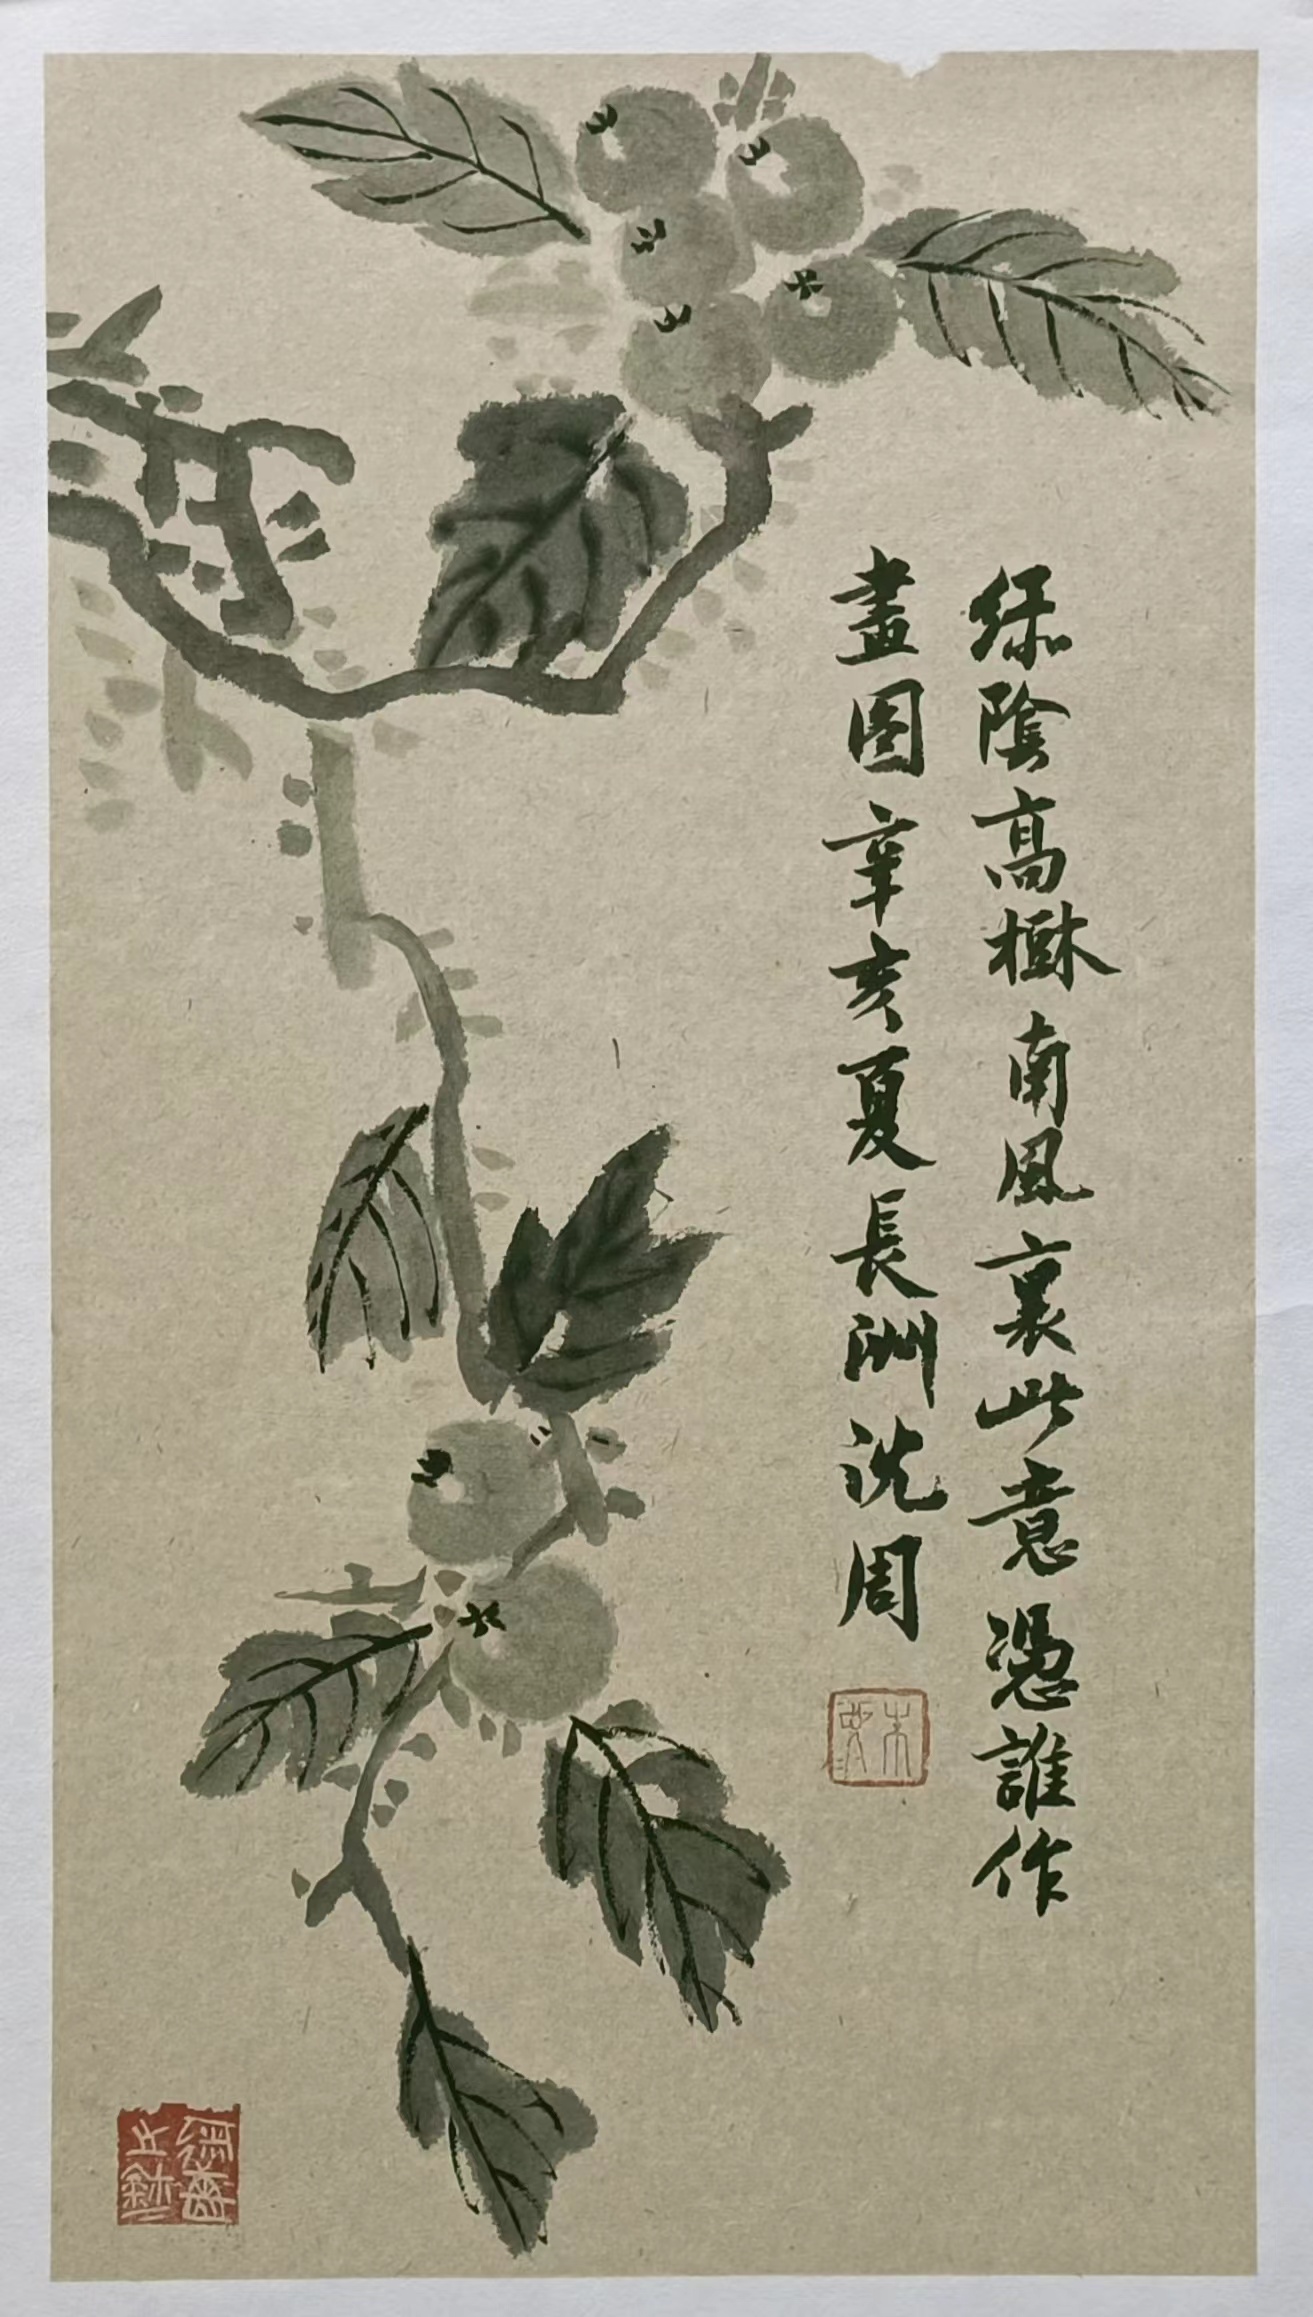 绿陰高樹南風裏此意憑誰作
畫圖辛亥夏長洲沈周